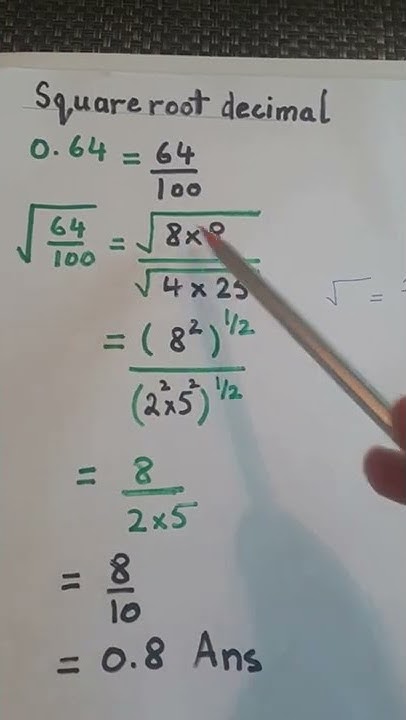 Square root decimal
0.64 = 64/100
√(64/100) = √(8×8)/√(4×25)
= (8²)^1/2 / (2²×5²)^1/2
= 8/(2×5)
= 8/10
= 0.8 Ans
√ =